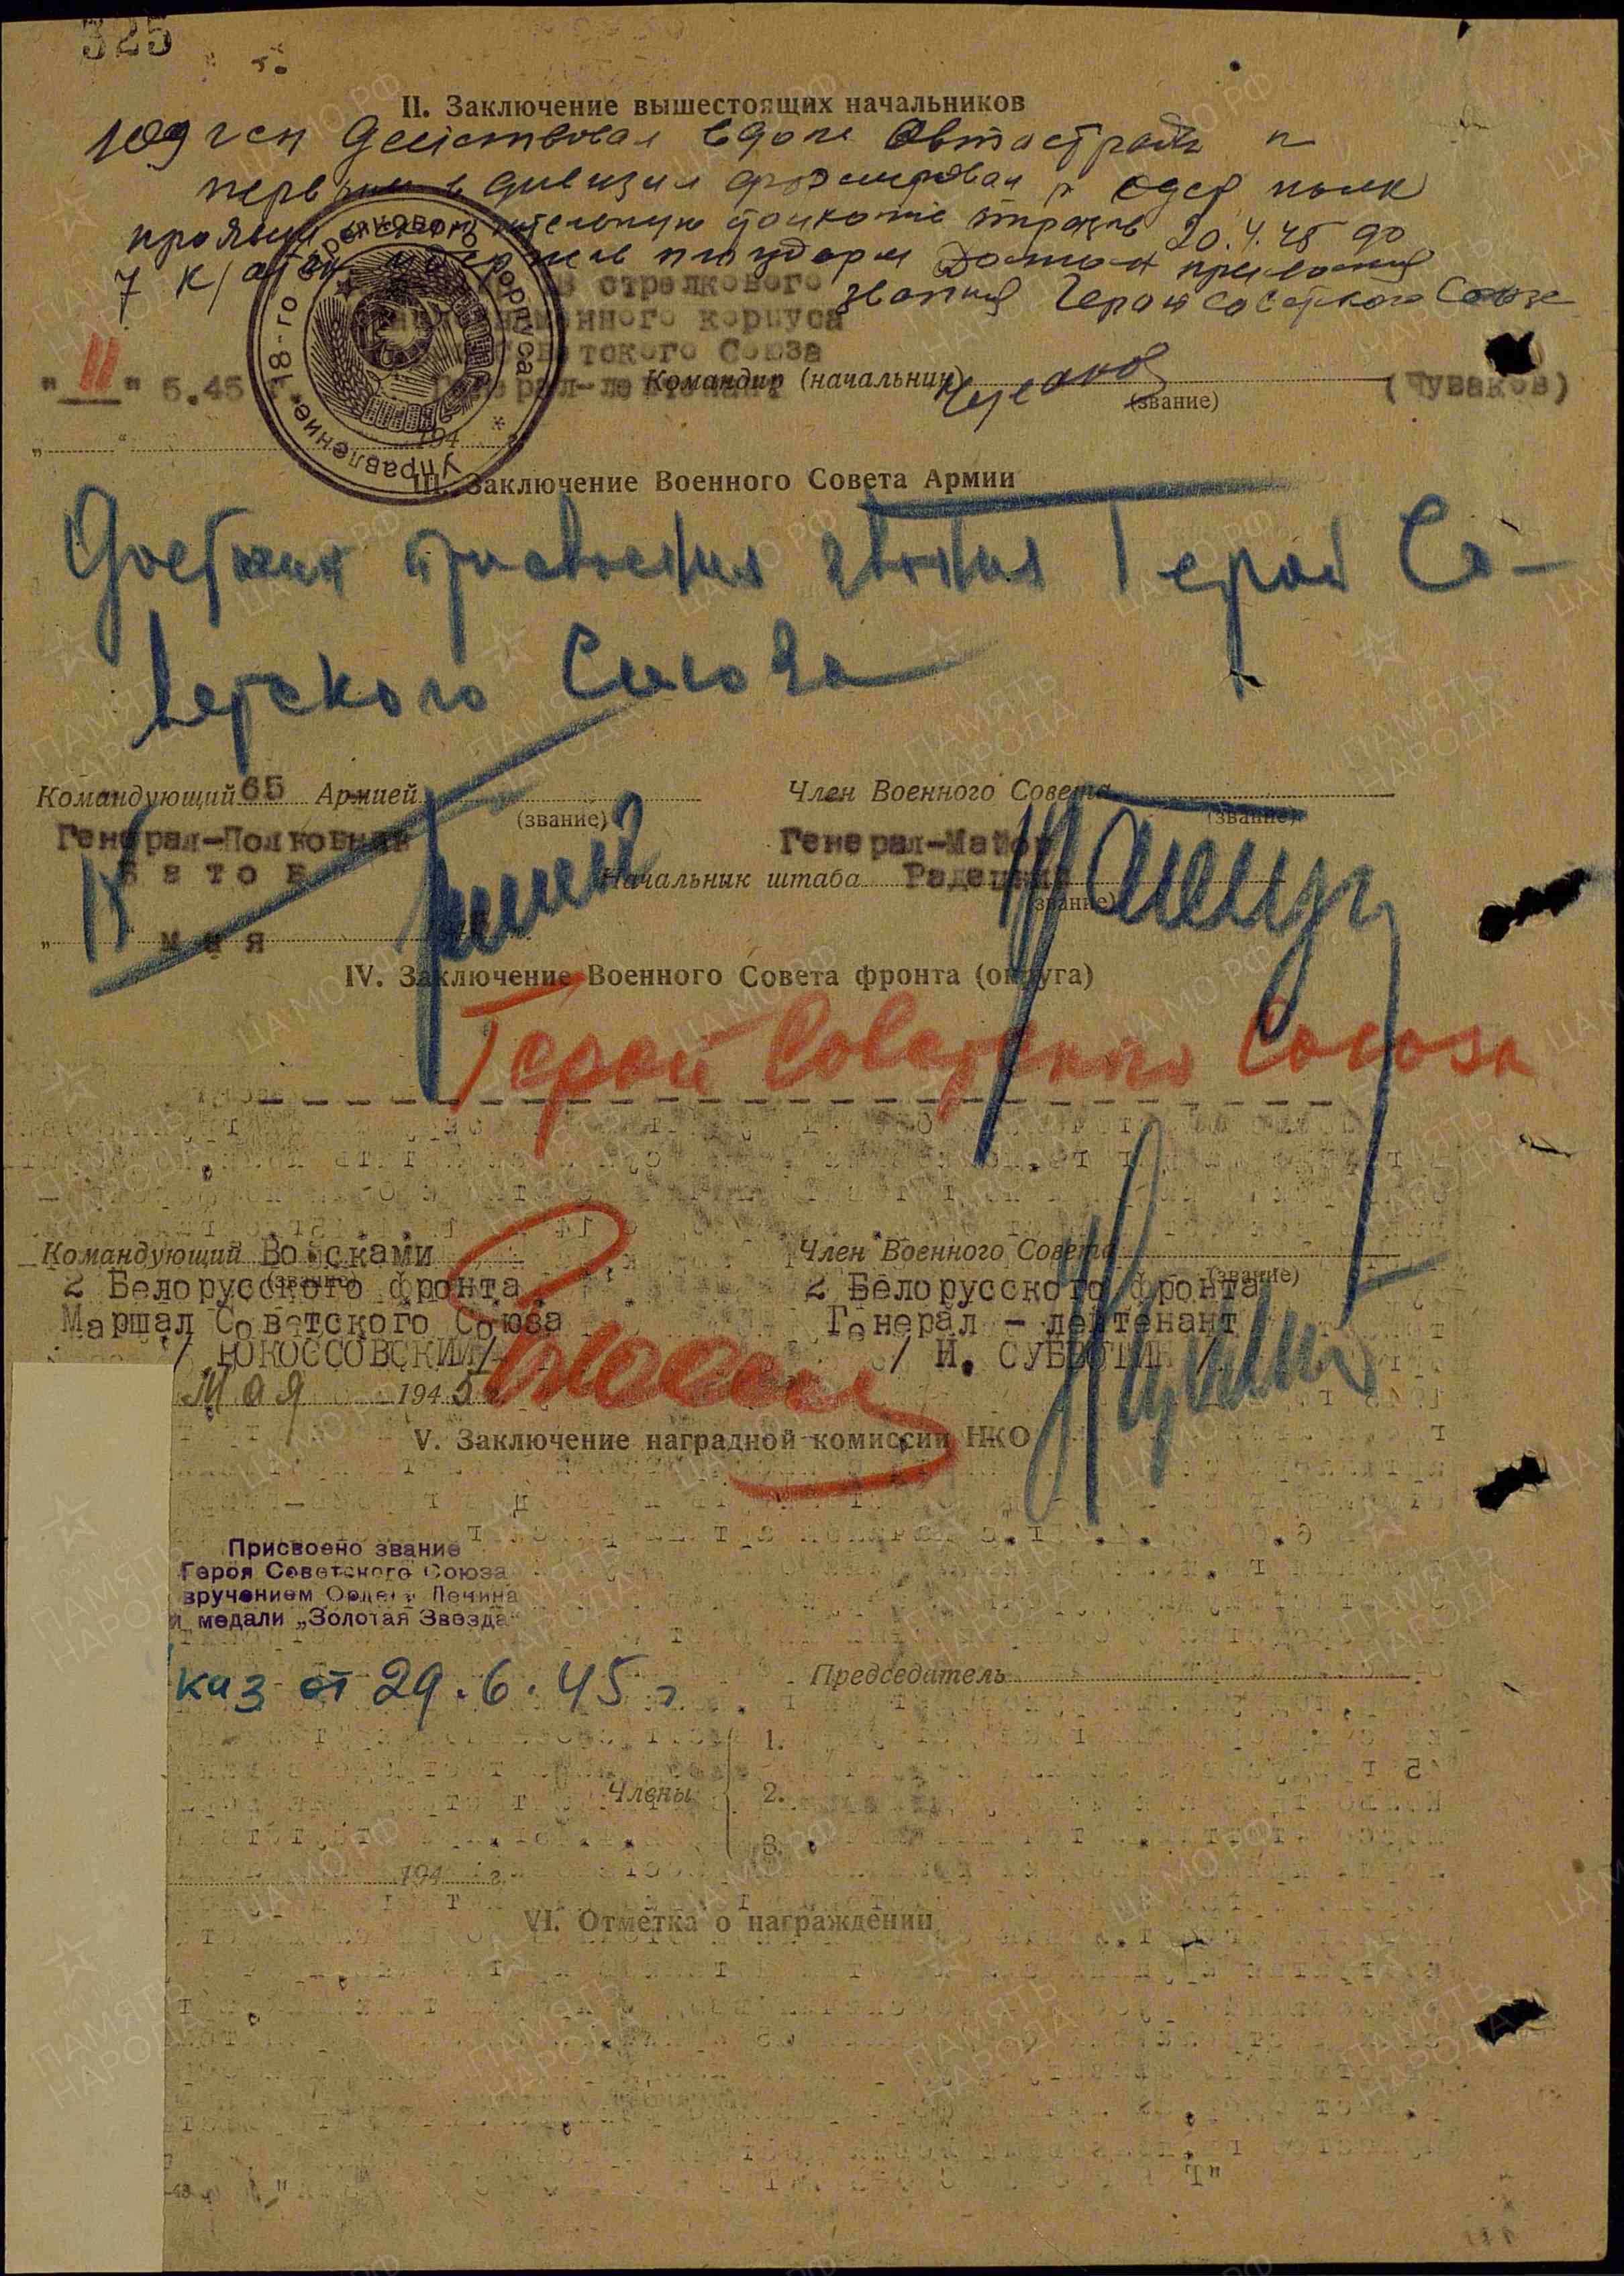 325
II. Заключение вышестоящих начальников
109 гсп действовал вдоль Автострады и
первым в дивизии форсировал р Одер полк
проявил исключительную стойкость отразив 20.4.45 до
7 к/атак плацдарм Достоин присвоения
звания Героя Советского Союза
стрелкового
корпуса
Советского Союза
Генерал-лейтенант
"11" 5.45 г.
Командир (начальник)
(звание)
(Чуваков)
Управление 18-го стрелкового корпуса
194
III. Заключение Военного Совета Армии
Достоин присвоения звания Герой Со-
ветского Союза
Командующий 65 Армией
(звание)
Генерал-Полковник
Батов
Член Военного Совета
(звание)
Генерал-Майор
Начальник штаба Радецкий
(звание)
мая
IV. Заключение Военного Совета фронта (округа)
Герой Советского Союза
Командующий Войсками
(звание)
2 Белорусского фронта
Маршал Советского Союза
/ РОКОССОВСКИЙ/
Мая 1945 г.
Член Военного Совета
(звание)
2 Белорусского фронта
Генерал - лейтенант
/ Н. СУББОТИН /
V. Заключение наградной комиссии НКО
Присвоено звание
Героя Советского Союза
вручением Ордена Ленина
и медали „Золотая Звезда“
каз от 29.6.45 г
Председатель
Члены
1.
2.
3.
194 г.
VI. Отметка о награждении